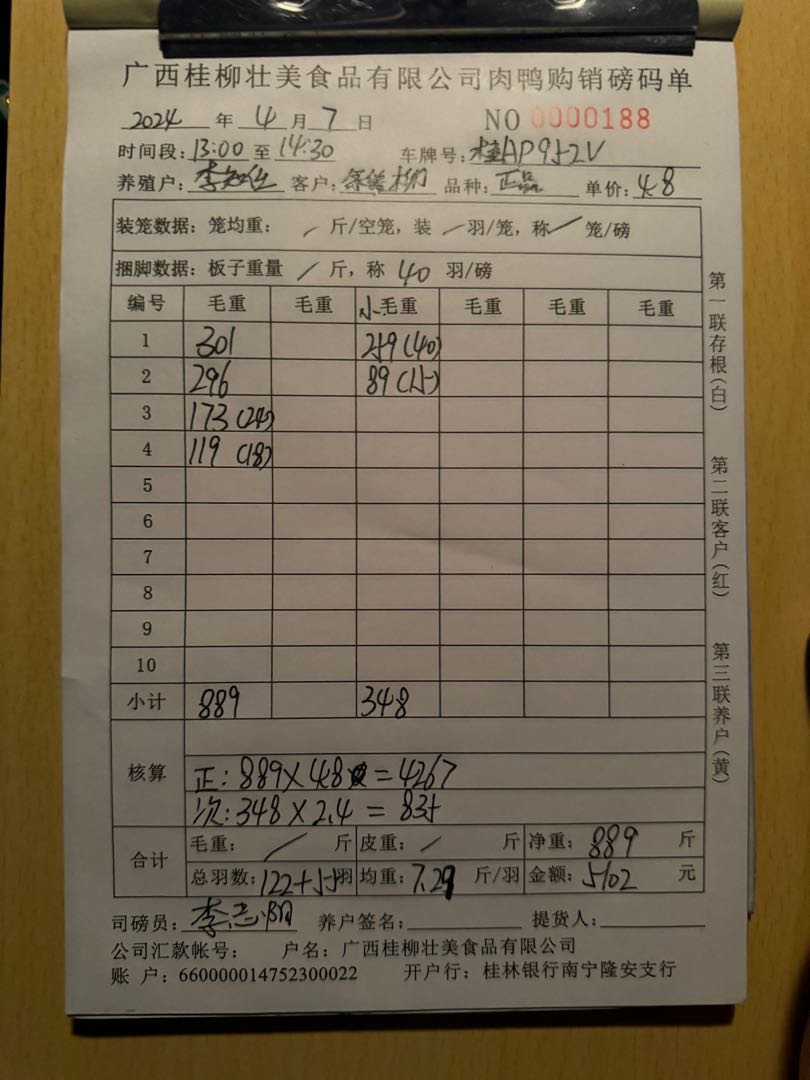 广西桂柳壮美食品有限公司肉鸭购销磅码单
2024 年 4 月 7 日 NO 0000188
时间段: 13:00 至 14:30 车牌号: 桂AP952V
养殖户: 李 客户: 品种: 正品 单价: 4.8
装笼数据: 笼均重: / 斤/空笼, 装 / 羽/笼, 称 / 笼/磅
捆脚数据: 板子重量 / 斤, 称 40 羽/磅
编号 毛重 毛重 小毛重 毛重 毛重 毛重
1 301 259(40)
2 296 89(15)
3 173(24)
4 119(18)
5
6
7
8
9
10
小计 889 348
核算
正: 889×4.8=4267
次: 348×2.4=835
合计
毛重: / 斤 皮重: / 斤 净重: 889 斤
总羽数: 122+55羽 均重: 7.29 斤/羽 金额: 5102 元
司磅员: 李志阳 养户签名: 提货人:
公司汇款帐号: 户名: 广西桂柳壮美食品有限公司
账 户: 660000014752300022 开户行: 桂林银行南宁隆安支行
第一联存根(白)
第二联客户(红)
第三联养户(黄)